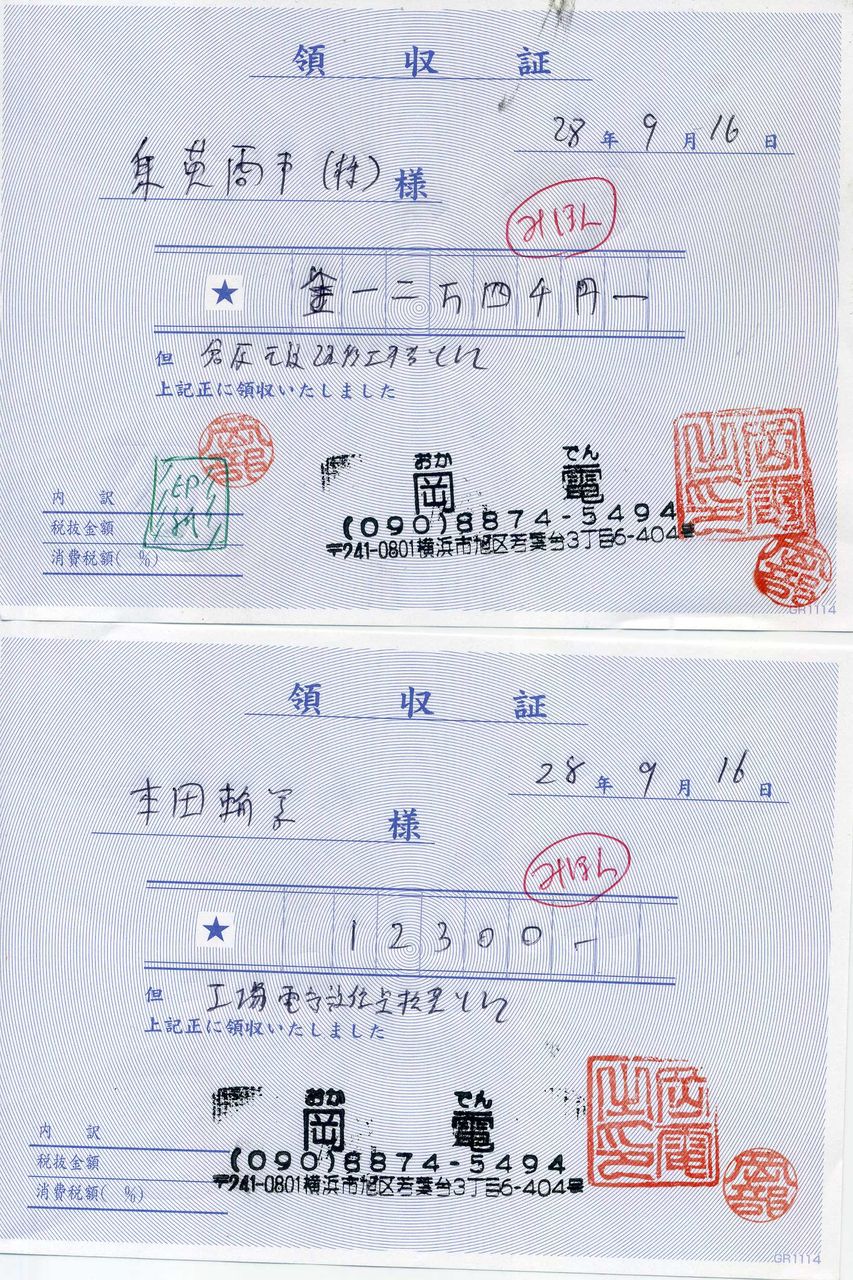 領収証
28年9月16日
東英商事(株)様
みほん
★ 金一二万四千円一
但
上記正に領収いたしました
おか でん
岡 電
(090)8874-5494
〒241-0801横浜市旭区若葉台3丁目6-404号
岡電之印
印紙
内訳
税抜金額
消費税額( %)
GR1114
領収証
28年9月16日
本田輪業
様
みほん
★ 12300-
但 工場電気設備
上記正に領収いたしました
おか でん
岡 電
(090)8874-5494
〒241-0801横浜市旭区若葉台3丁目6-404号
岡電之印
内訳
税抜金額
消費税額( %)
GR1114